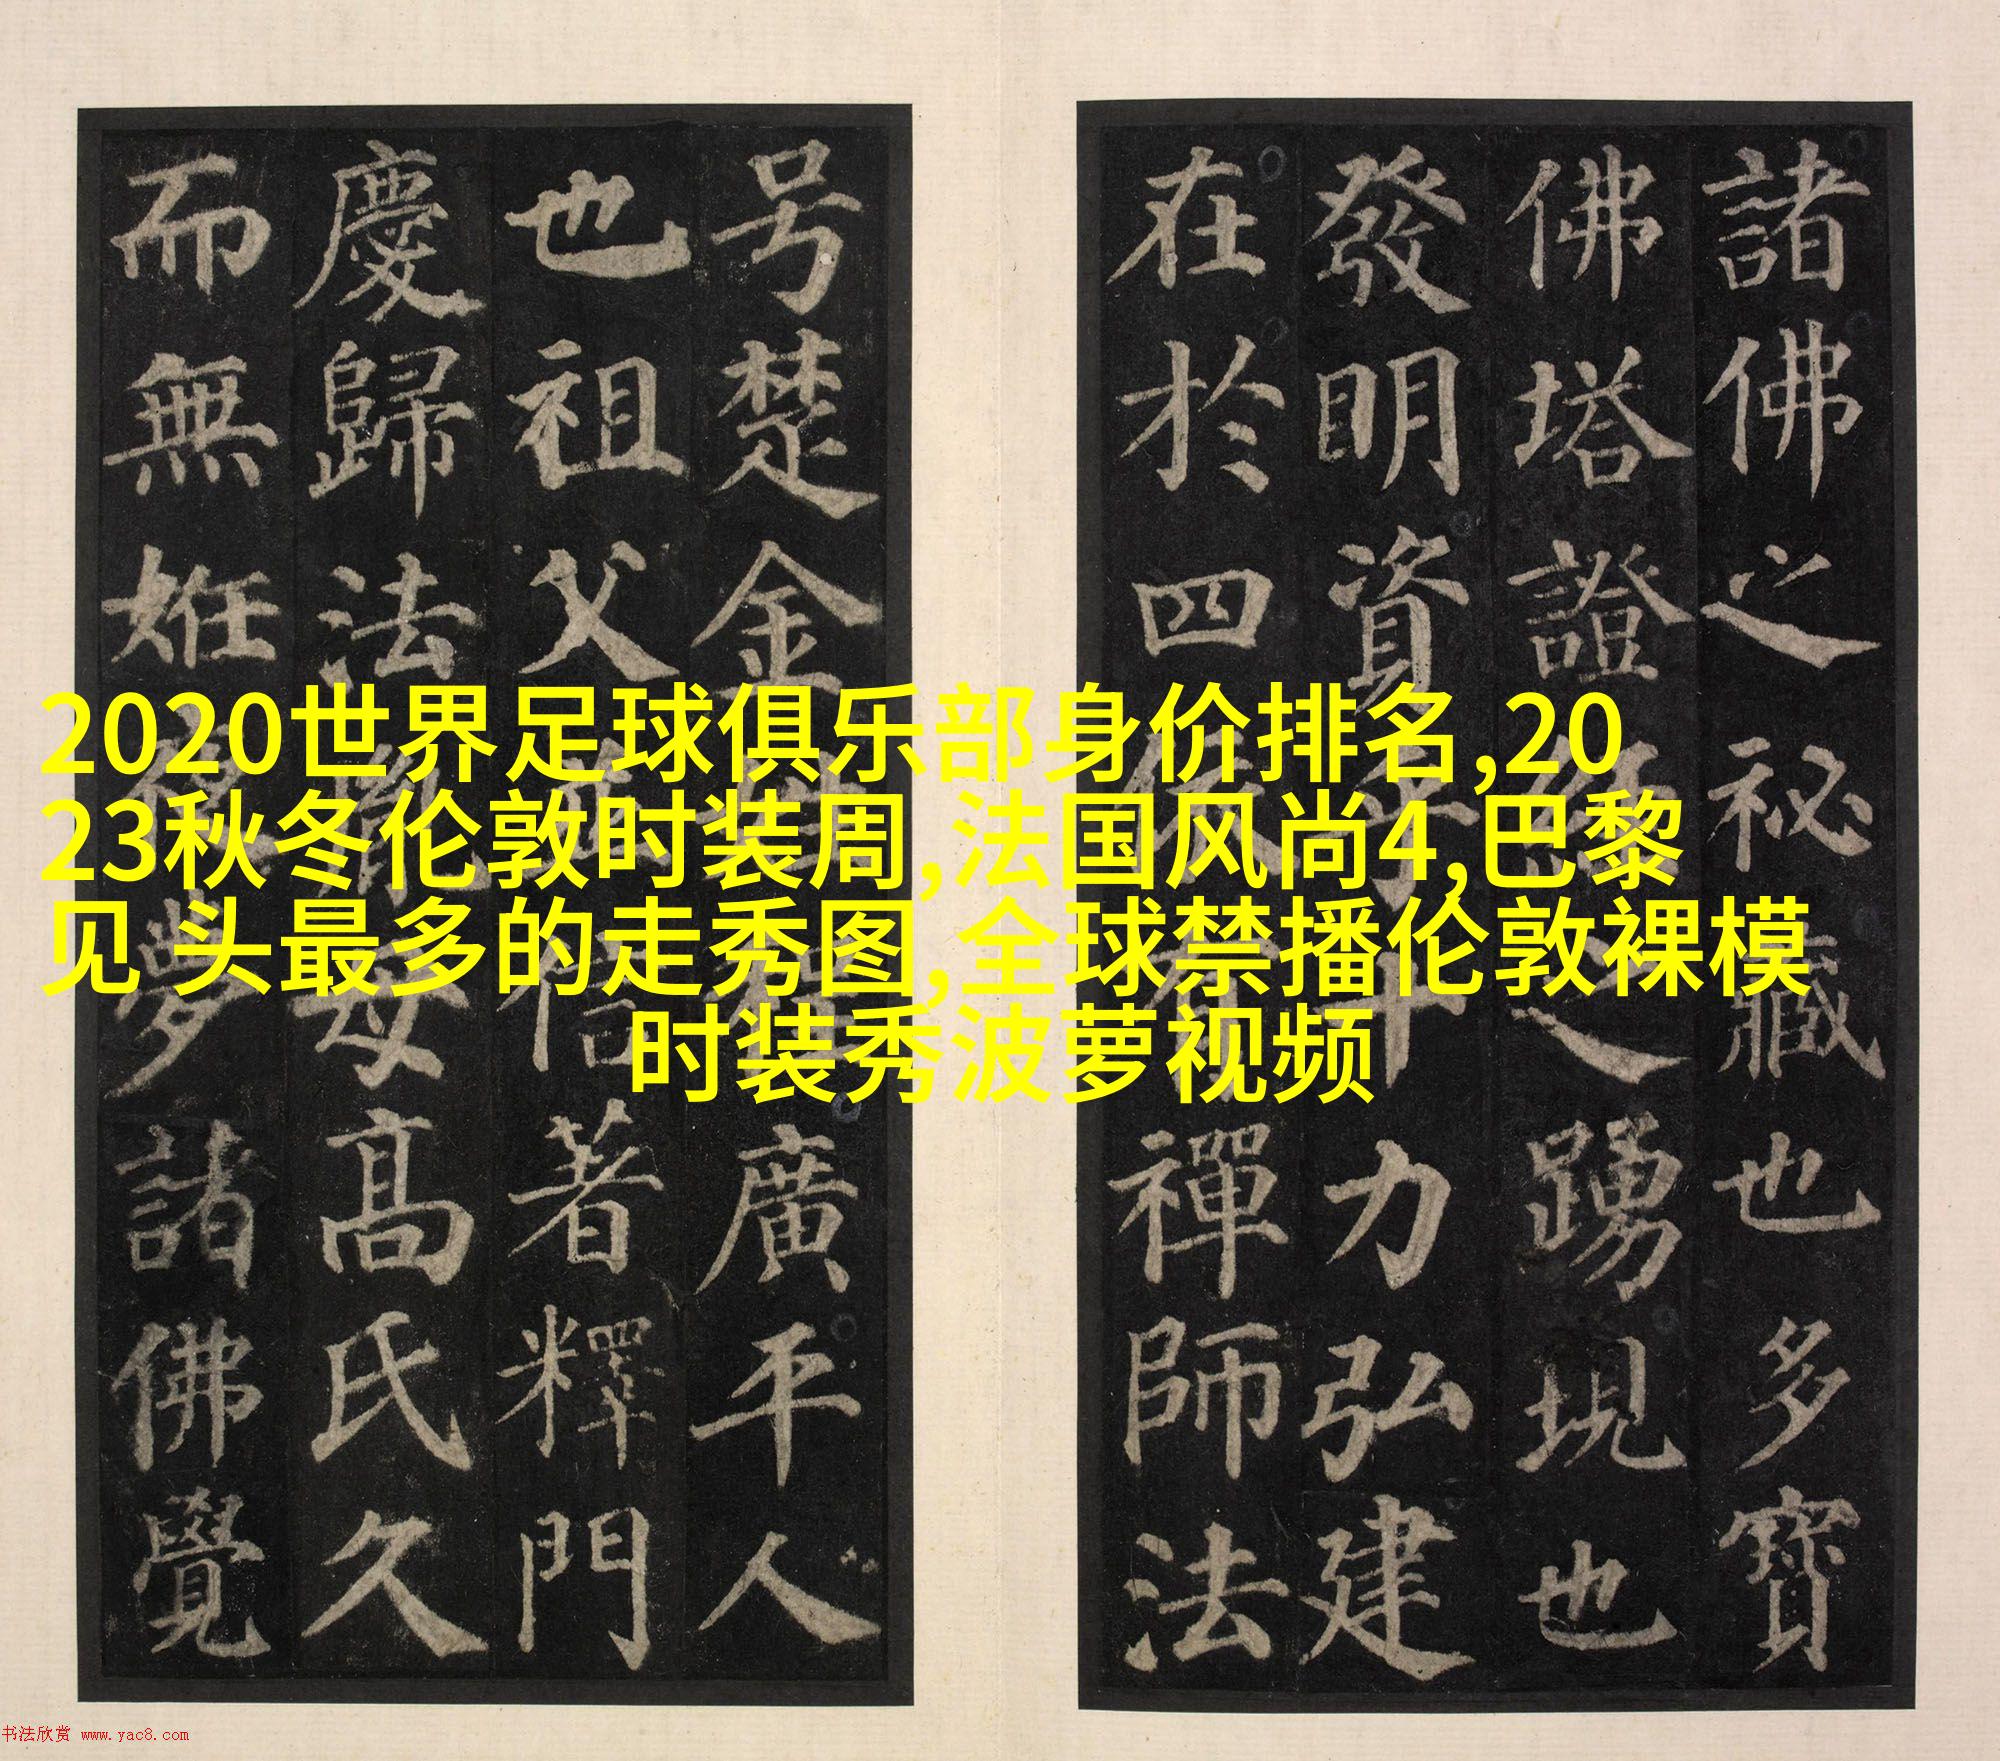 諸佛之祕藏也多寶
佛塔證經之踴現也
發明資乎十力弘建
在於四依有禪師法
号楚金姓程廣平人
也祖父並信著釋門
慶歸法胤母高氏久
而無姙夜夢諸佛覺
2020世界足球俱乐部身价排名,20
23秋冬伦敦时装周,法国风尚4,巴黎
见 头最多的走秀图,全球禁播伦敦裸模
时装秀波萝视频
书法欣赏 www.yac8.com